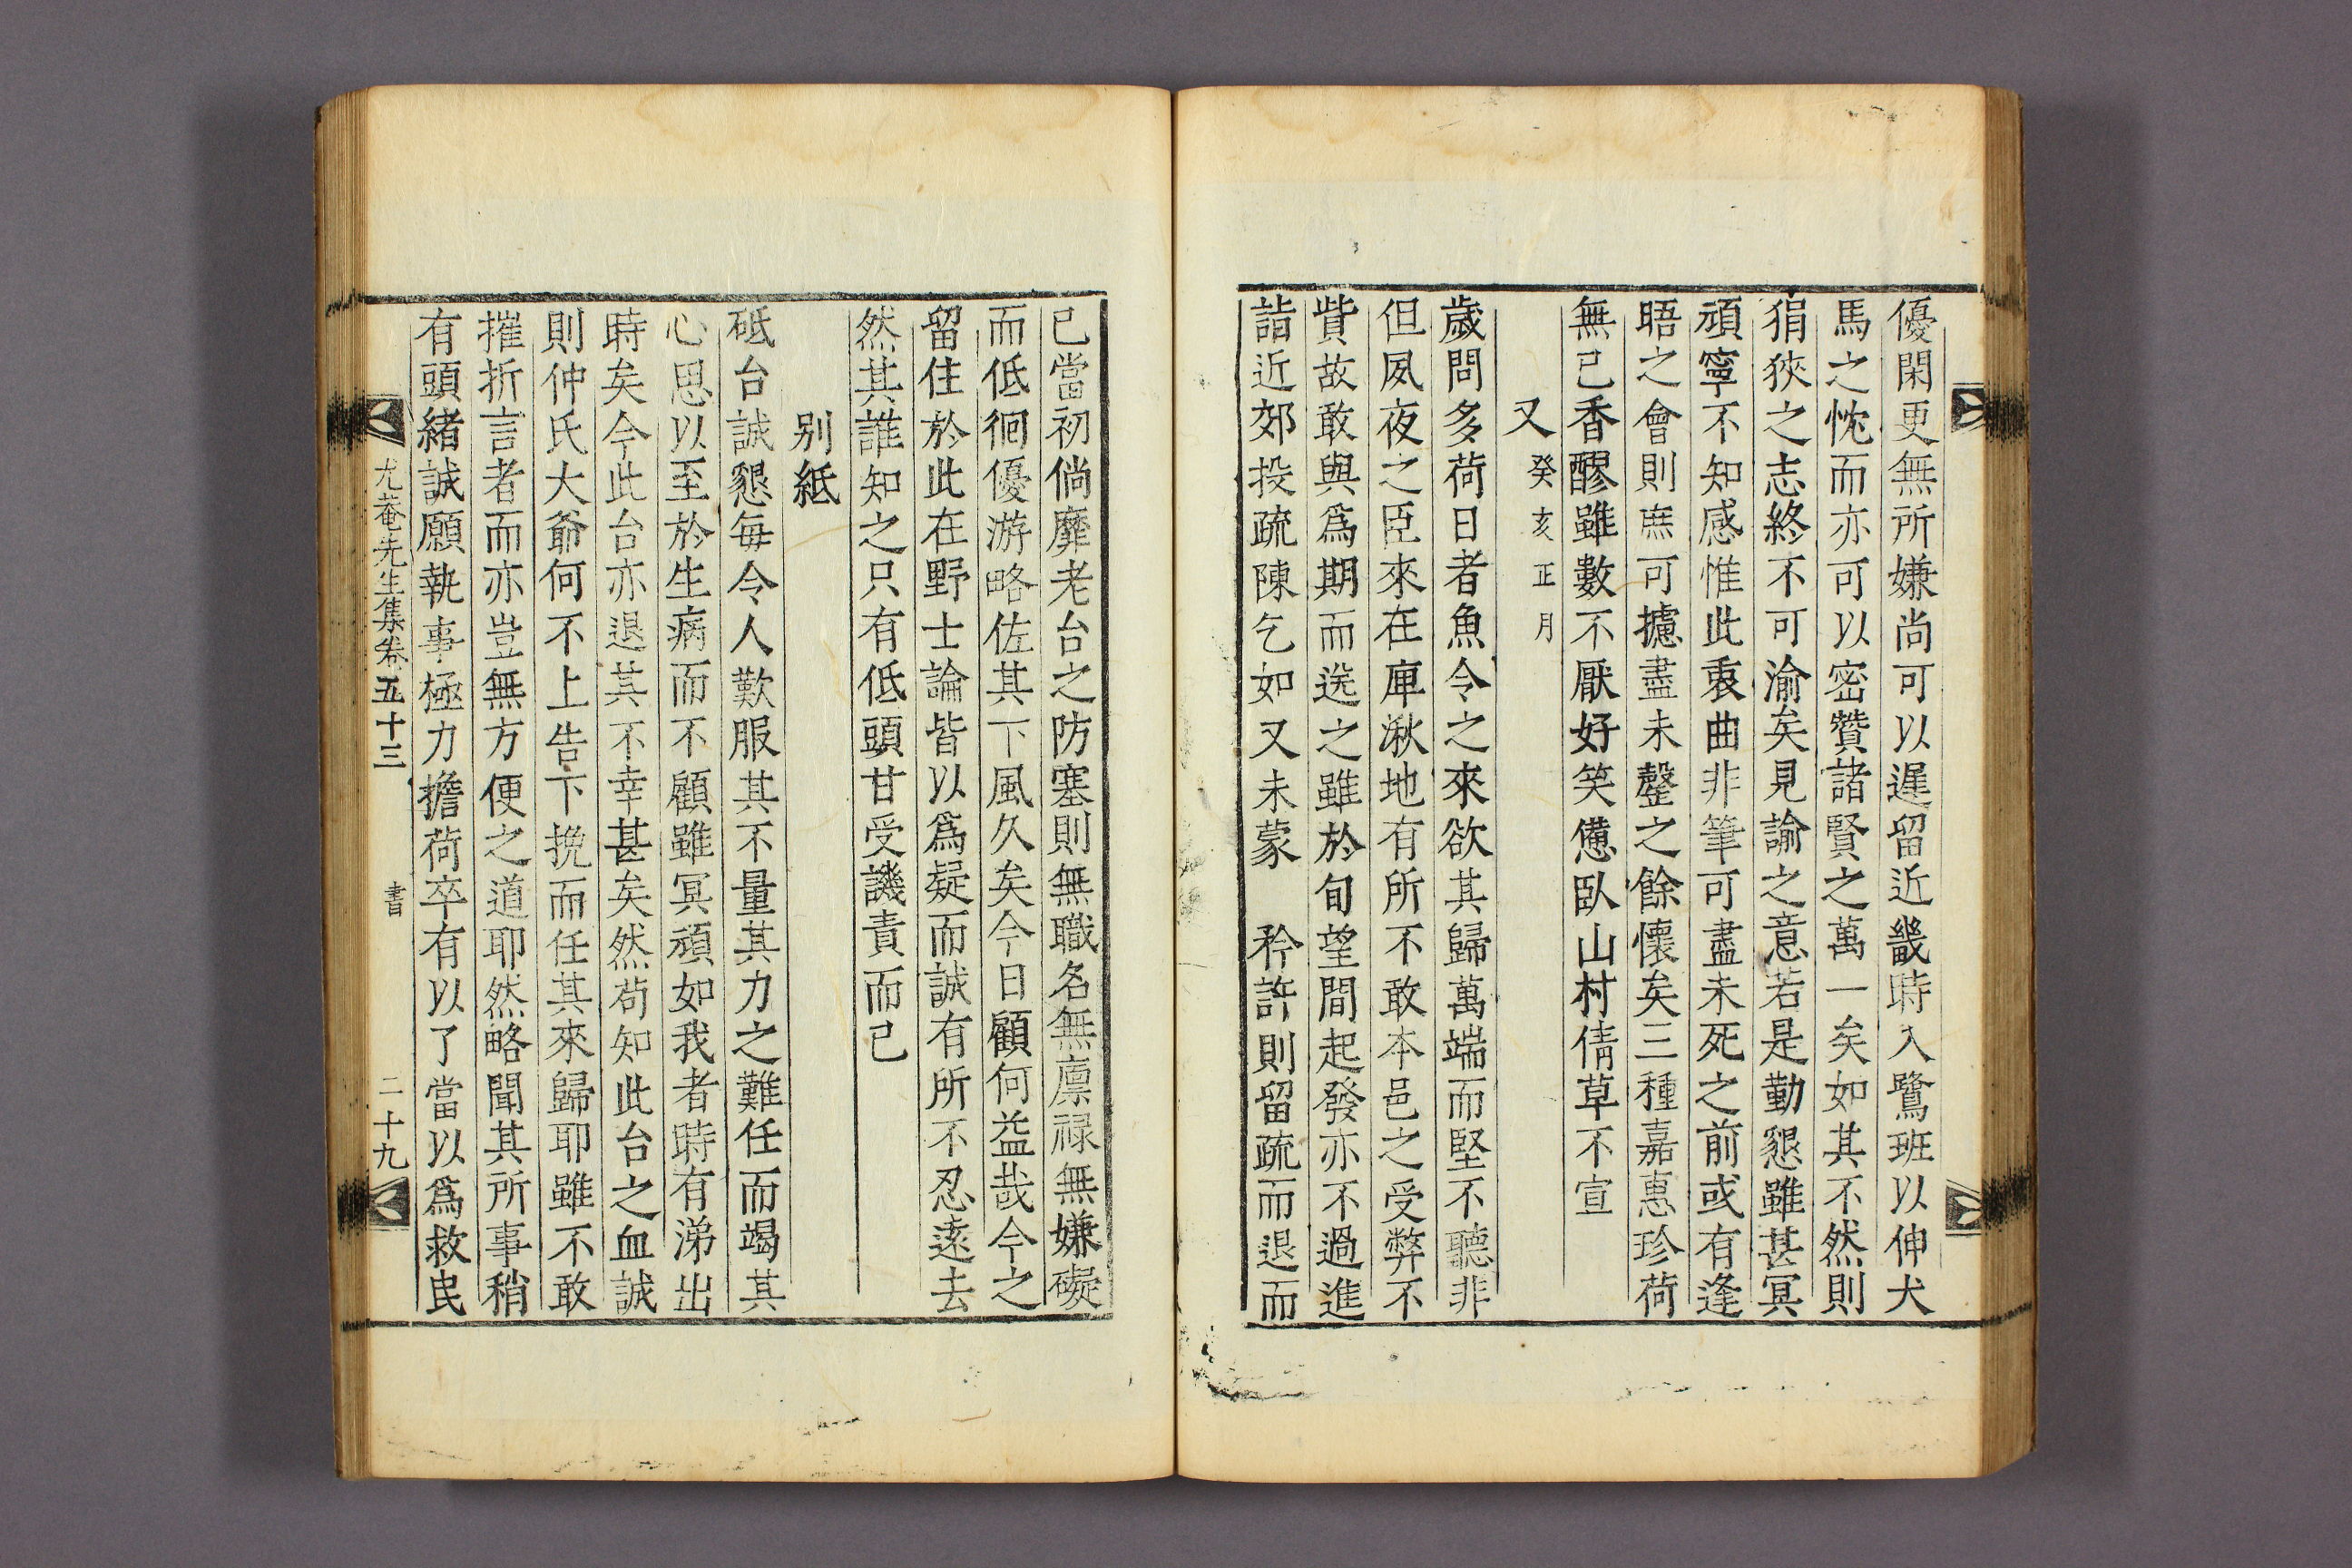 優閑更無所嫌尚可以遲留近畿時入鷺班以伸犬
馬之忱而亦可以密贊諸賢之萬一矣如其不然則
狷狹之志終不可渝矣見諭之意若是勤懇雖甚冥
頑寧不知感惟此衷曲非筆可盡未死之前或有逢
晤之會則庶可攄盡未罄之餘懷矣三種嘉惠珍荷
無已香醪雖數不厭好笑憊臥山村倩草不宣
又 癸亥正月
歲問多荷日者魚令之來欲其歸萬端而堅不聽非
但夙夜之臣來在庳湫地有所不敢本邑之受弊不
貲故敢與爲期而送之雖於旬望間起發亦不過進
詣近郊投疏陳乞如又未蒙 矜許則留疏而退而
已當初倘靡老台之防塞則無職名無廩祿無嫌礙
而低徊優游略佐其下風久矣今日顧何益哉今之
留住於此在野士論皆以爲疑而誠有所不忍遠去
然其誰知之只有低頭甘受譏責而已
別紙
砥台誠懇每令人歎服其不量其力之難任而竭其
心思以至於生病而不顧雖冥頑如我者時有涕出
時矣今此台亦退其不幸甚矣然苟知此台之血誠
則仲氏大爺何不上告下挽而任其來歸耶雖不敢
摧折言者而亦豈無方便之道耶然略聞其所事稍
有頭緒誠願執事極力擔荷卒有以了當以爲救民
尤菴先生集卷五十三 書 二十九